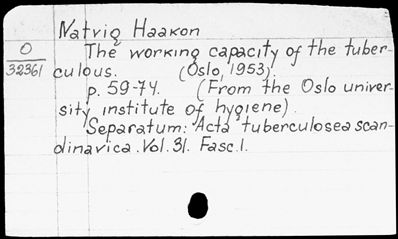 Natvig Haakon
O
32361
The working capacity of the tuber-
culous. (Oslo, 1953).
p. 59-74. (From the Oslo univer-
sity institute of hygiene).
Separatum: Acta tuberculosea scan-
dinavica. Vol. 31. Fasc. 1.